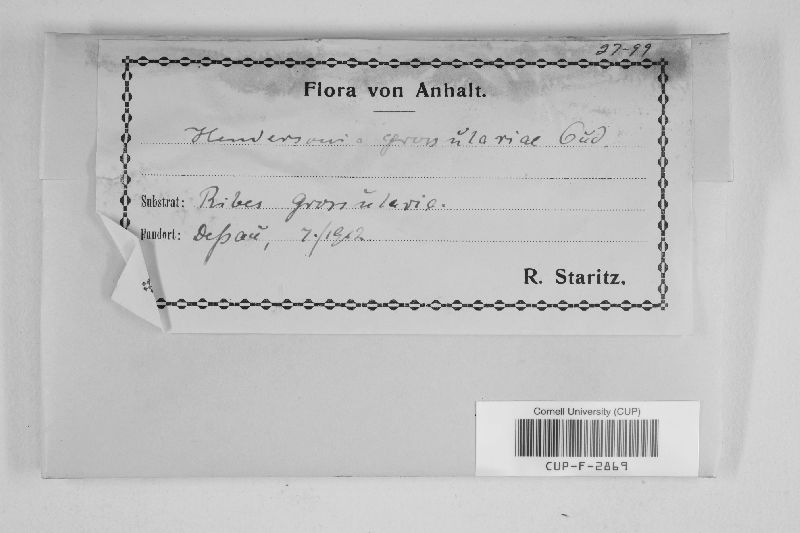 27-99
Flora von Anhalt.
Hendersonia grossulariae Oud.
Substrat: Ribes grossularia.
Fundort: Deßau, 7./1912
R. Staritz.
Cornell University (CUP)
CUP-F-2869